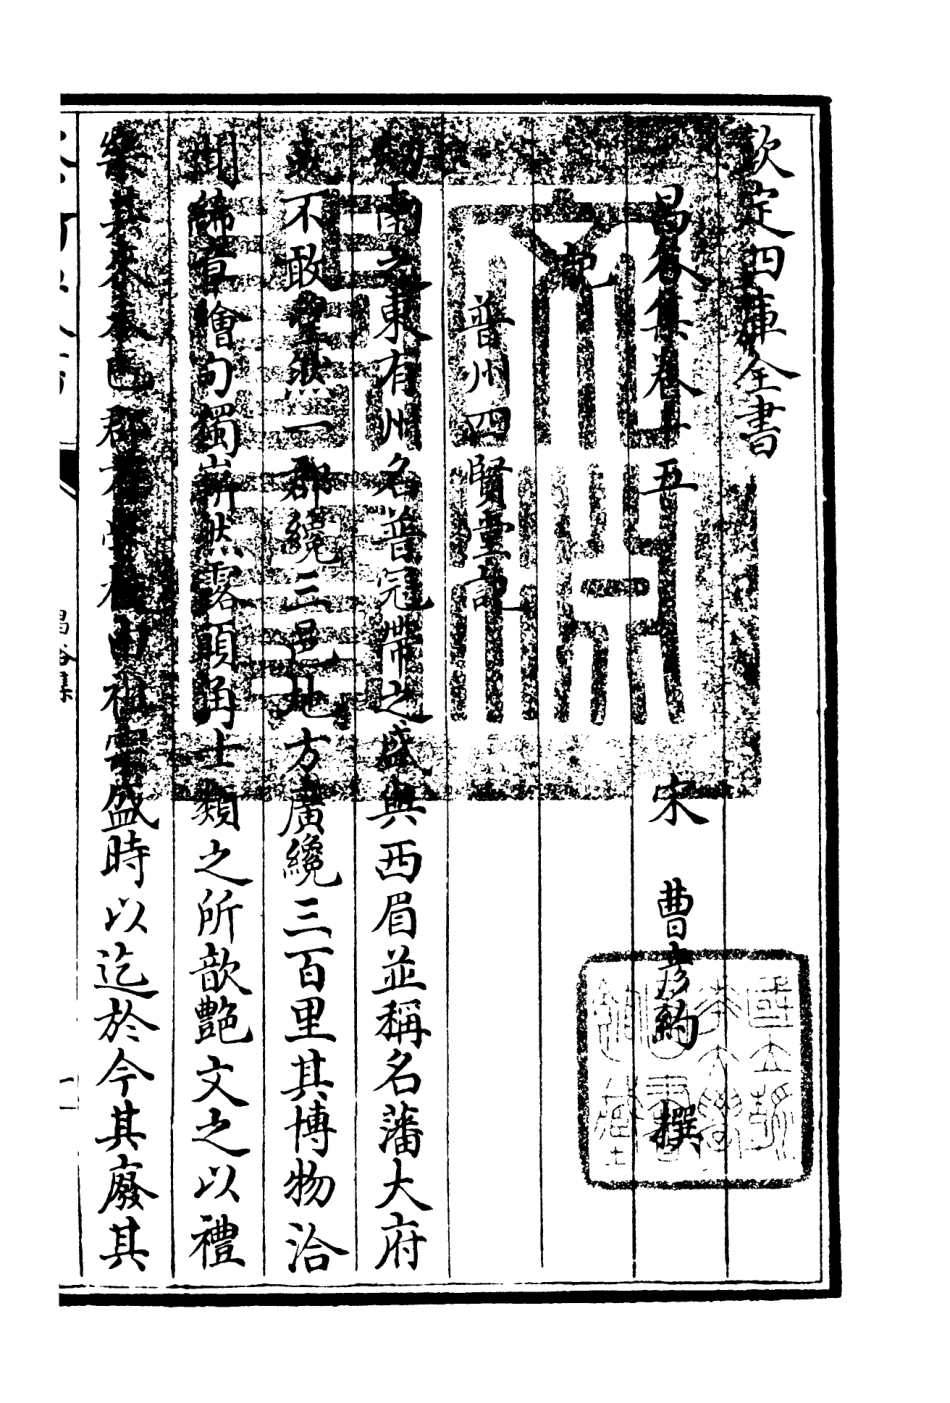 欽定四庫全書
昌谷集卷十五
宋　曹彦約　撰
記
普州四賢堂記
劍南之東有州名普冠帶之盛與西眉並稱名藩大府
不敢望然一郡纔三邑地方廣纔三百里其博物洽
聞絺章繪句獨嶄然露頭角士類之所歆艶文之以禮
樂其來
巴郡
祖宗盛時以迄於今其廢其
昌谷集